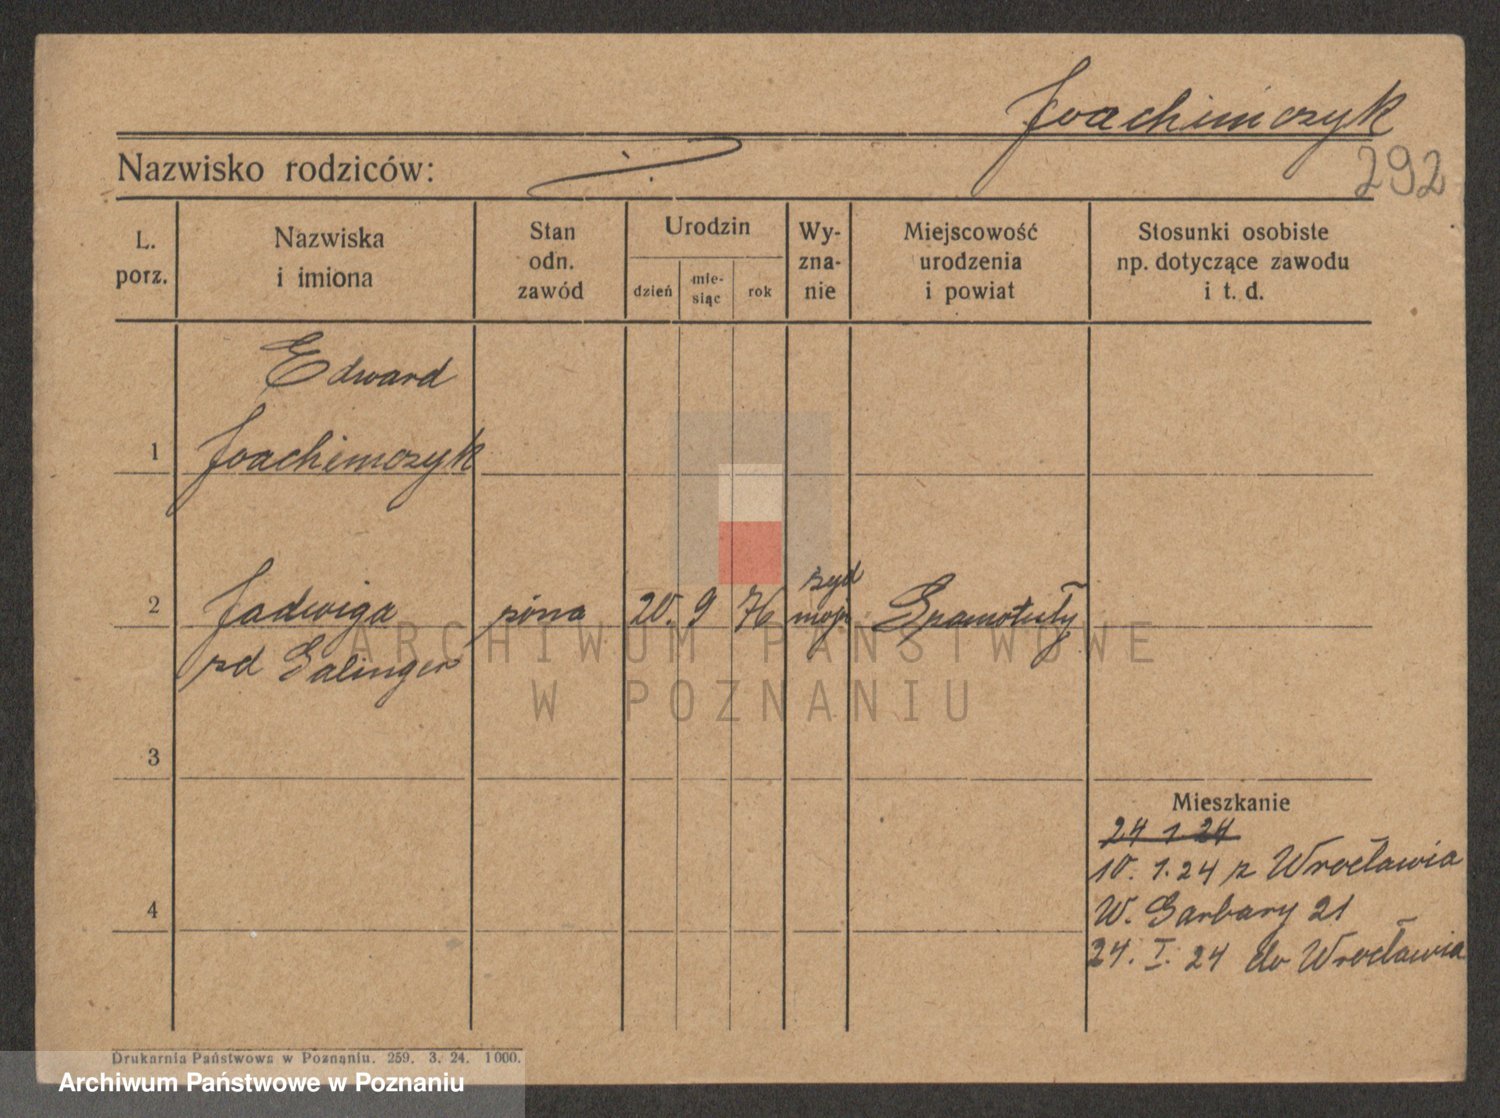 Joachimczyk
292
Nazwisko rodziców:
L. porz.
Nazwiska i imiona
Stan odn. zawód
Urodzin
dzień
mie- siąc
rok
Wy- zna- nie
Miejscowość urodzenia i powiat
Stosunki osobiste np. dotyczące zawodu i t. d.
Edward
1 Joachimczyk
2 Jadwiga żona 20. 9 76 żyd mojż Szamotuły
zd Galinger
ARCHIWUM PAŃSTWOWE
W POZNANIU
3
Mieszkanie
24 1 24
10. 1. 24 z Wrocławia
4
W. Garbary 21
24. I. 24 do Wrocławia
Drukarnia Państwowa w Poznaniu. 259. 3. 24. 1000.
Archiwum Państwowe w Poznaniu